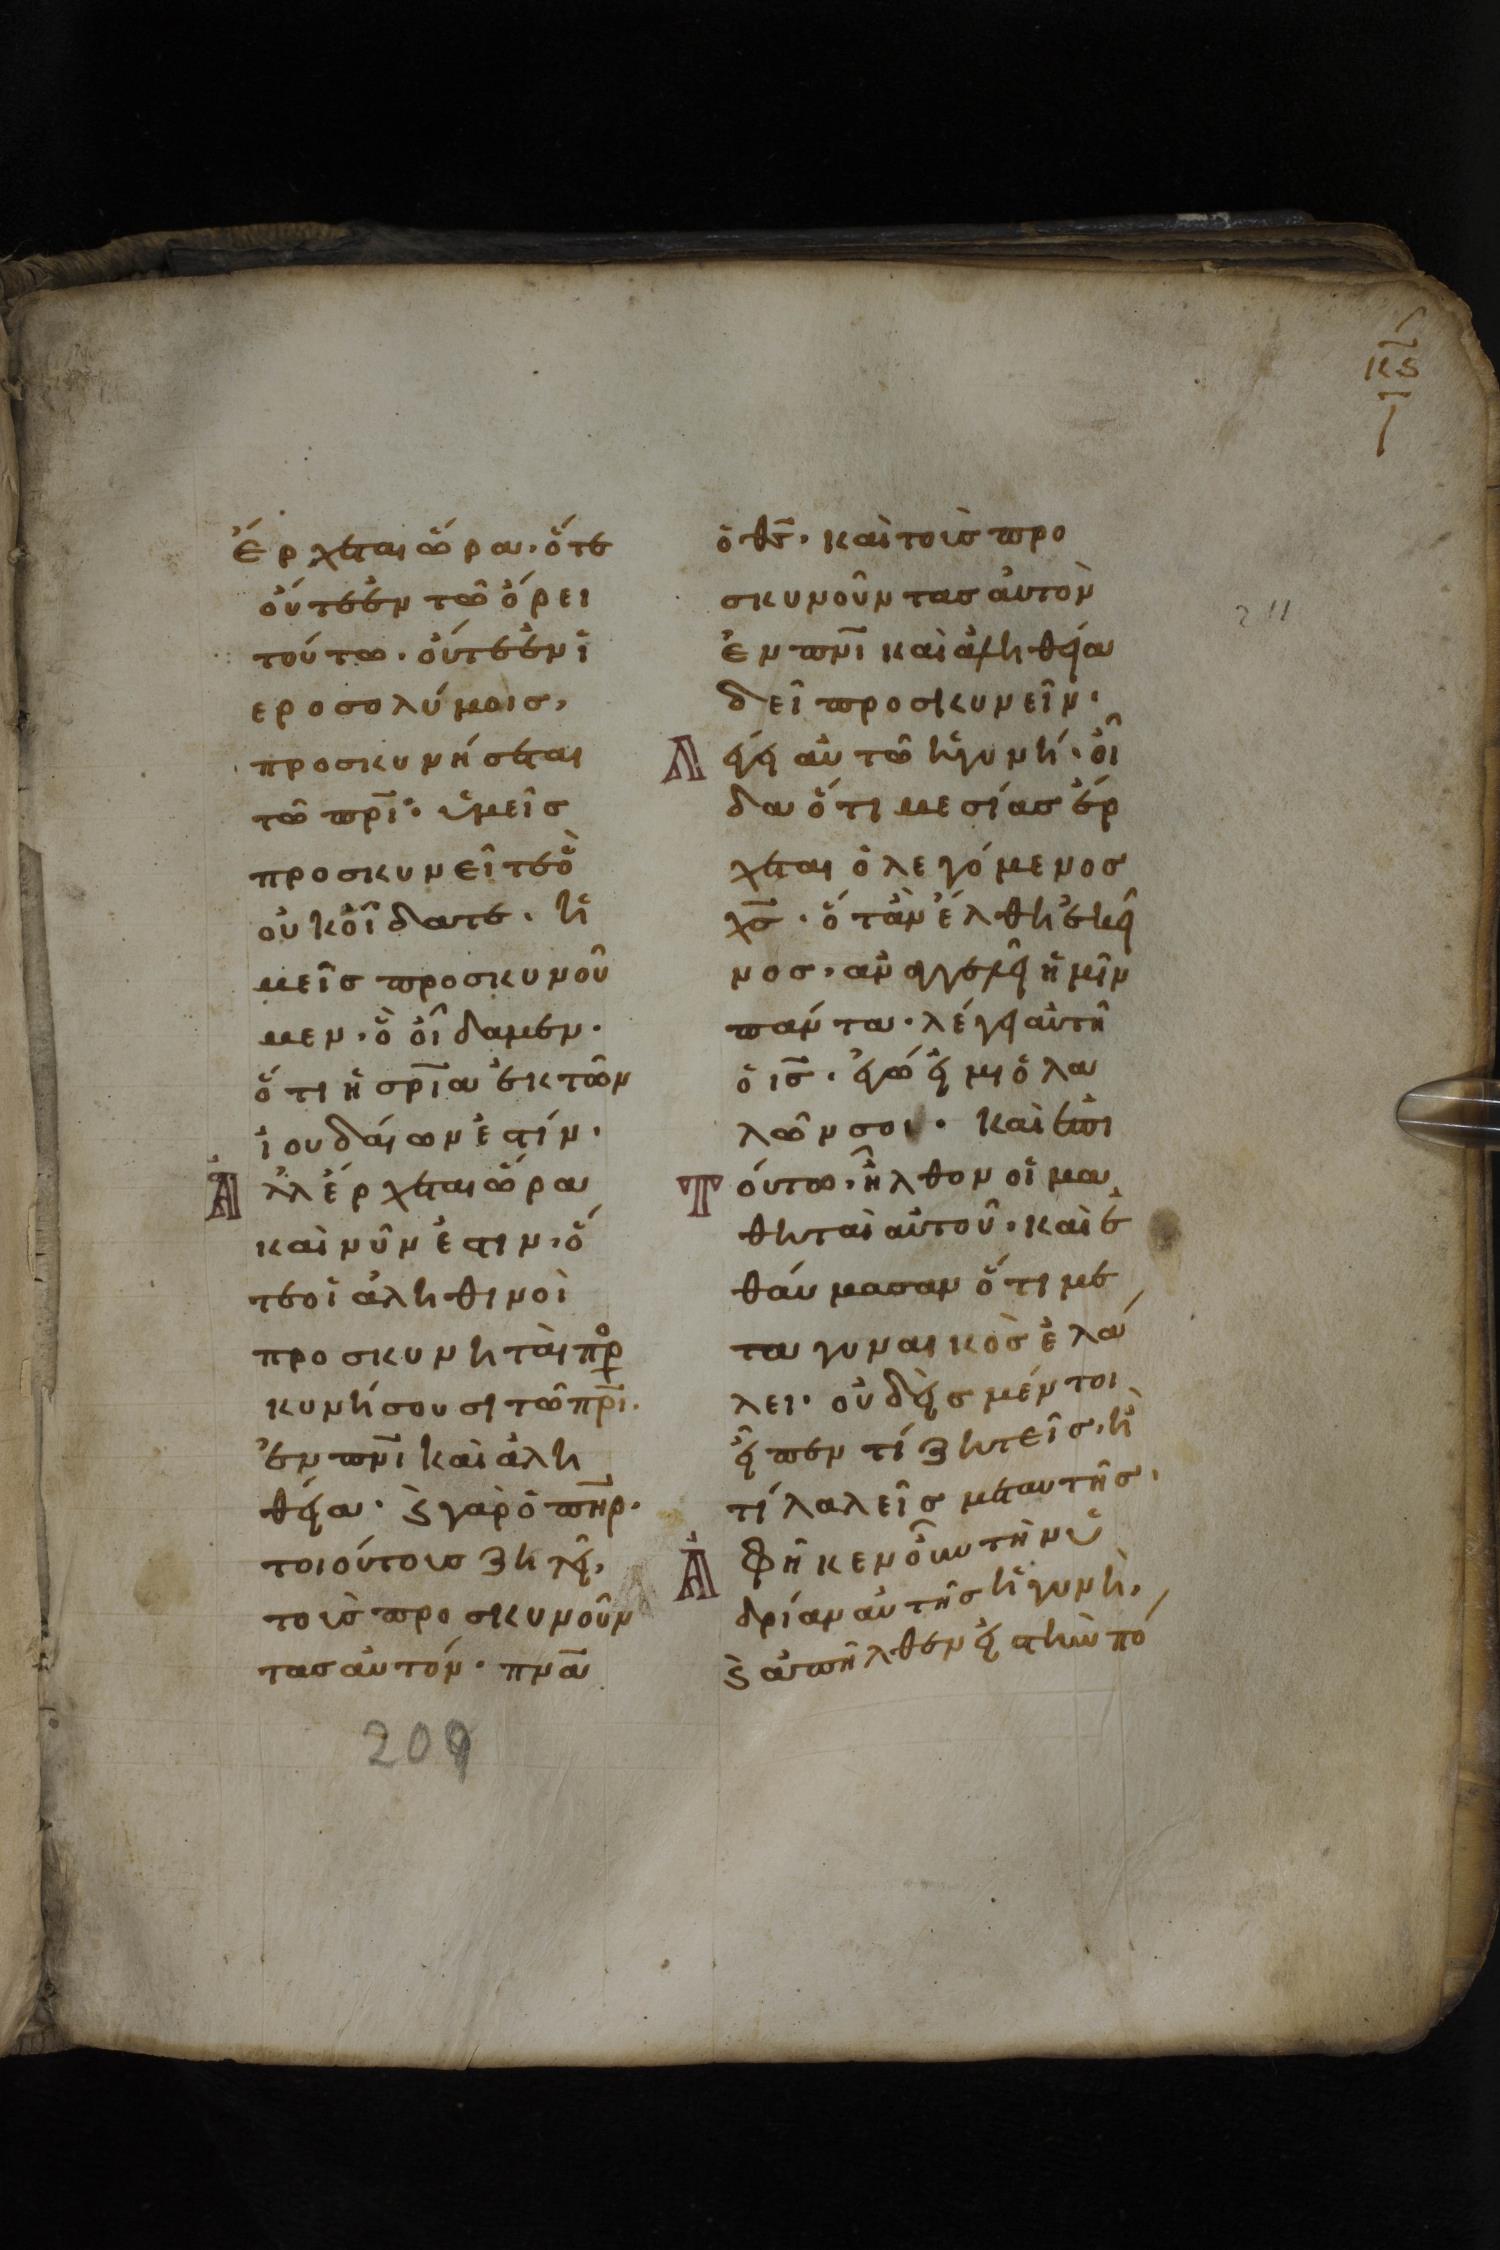 κϛ
ἔρχεται ὥρα· ὅτε
οὔτε ἐν τῶ ὄρει
τούτω· οὔτε ἐν ἱ
εροσολύμοισ,
προσκυνήσεται
τῶ πρι· ὑμεῖσ
προσκυνεῖτε ὃ
οὐκ οἴδατε· ἡ
μεῖσ προσκυνοῦ
μεν· ὃ οἴδαμεν·
ὅτι ἡ σρια ἐκ τῶν
ἰουδαίων ἐστίν·
Ἀλλ ἔρχεται ὥρα
καὶ νῦν ἐστιν· ὅ
τε οἱ ἀληθινοὶ
προσκυνηταὶ προ
κυνήσουσι τῶ πρι·
ἐν πνι καὶ ἀλη
θεία· ϗ γὰρ ὁ πηρ·
τοιούτουσ ζητεῖ,
τοὺσ προσκυνοῦν
τασ αὐτόν· πνα
ὁ θσ· καὶ τοὺσ προ
σκυνοῦντασ αὐτὸν
ἐν πνι καὶ ἀληθεία
δεῖ προσκυνεῖν·
Λέγει αὐτῶ ἡ γυνή· οἶ
δα ὅτι μεσίασ ἔρ
χεται ὁ λεγόμενοσ
χσ· ὅταν ἔλθη ἐκεῖ
νοσ, ἀναγγελεῖ ἡμῖν
πάντα· λέγει αὐτῆ
ὁ ισ· ἐγώ εἰμι ὁ λα
λῶν σοι· καὶ ἐπὶ
Τούτω· ἦλθον οἱ μα
θηταὶ αὐτοῦ· καὶ ἐ
θαύμασαν ὅτι με
τα γυναικὸσ ἐλά
λει· οὐδεὶσ μέντοι
εἶπεν τί ζητεῖσ· ἢ
τί λαλεῖσ μετ αυτῆσ·
Ἀφῆκεν οὖν τὴν ὑ
δρίαν αὐτῆσ ἡ γυνὴ,
ϗ ἀπῆλθεν εἰσ τὴν πό
209
211